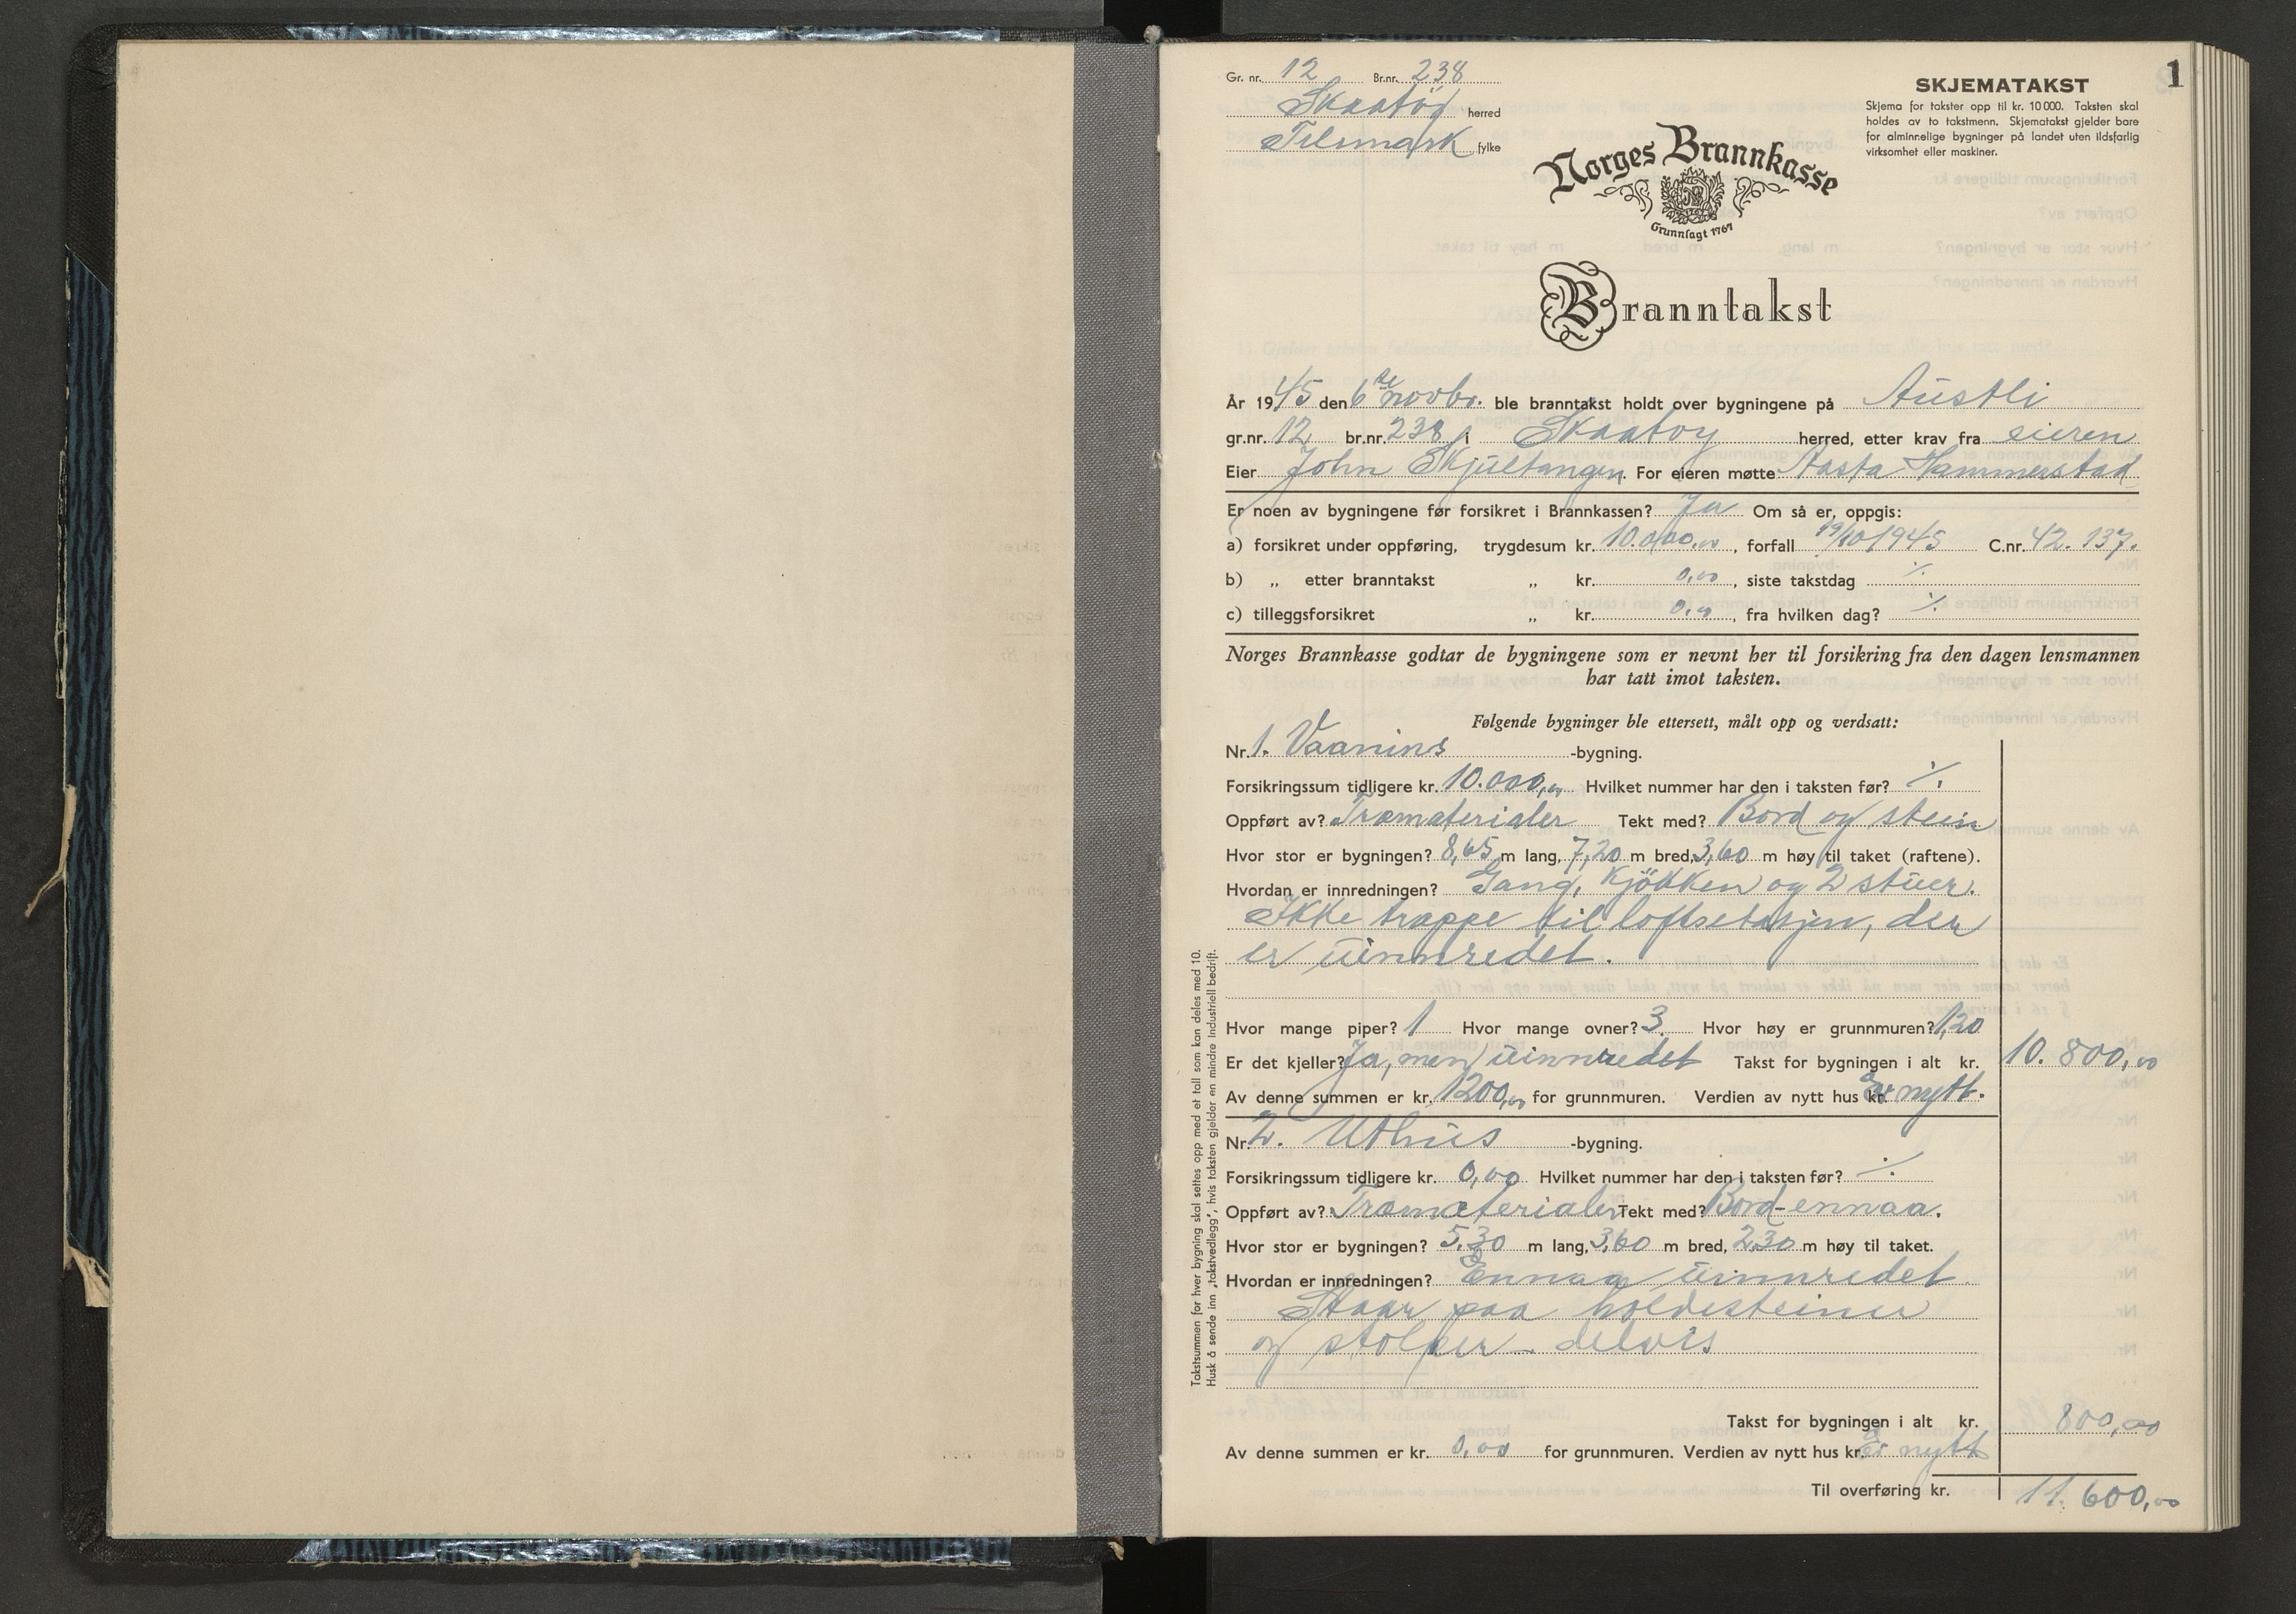 1
Gr. nr. 12 Br.nr. 238
Skaatöy herred
Telemark fylke
SKJEMATAKST
Skjema for takster opp til kr. 10 000. Taksten skal
holdes av to takstmenn. Skjematakst gjelder bare
for alminnelige bygninger på landet uten ildsfarlig
virksomhet eller maskiner.
Norges Brannkasse
Grunnlagt 1767
Branntakst
År 1945 den 6te novbr. ble branntakst holdt over bygningene på Austli
gr.nr. 12 br.nr. 238 i Skaatoy herred, etter krav fra eieren
Eier John Skjultangen. For eieren møtte Aasta Hammerstad
Er noen av bygningene før forsikret i Brannkassen? Ja Om så er, oppgis:
a) forsikret under oppføring, trygdesum kr. 10.000,00, forfall 19/10 1945 C.nr. 42.137.
b) „ etter branntakst „ kr. 0,00, siste takstdag ./.
c) tilleggsforsikret „ kr. 0,00, fra hvilken dag? ./.
Norges Brannkasse godtar de bygningene som er nevnt her til forsikring fra den dagen lensmannen
har tatt imot taksten.
Følgende bygninger ble ettersett, målt opp og verdsatt:
Nr. 1. Vaanins -bygning.
Forsikringssum tidligere kr. 10.000,00 Hvilket nummer har den i taksten før? ./.
Oppført av? Træmaterialer Tekt med? Bord og stein
Hvor stor er bygningen? 8,65 m lang, 7,20 m bred, 3,60 m høy til taket (raftene).
Hvordan er innredningen? Gang, Kjökken og 2 stuer.
Ikke trappe til loftsetasjen, der
er uinnredet.
Hvor mange piper? 1 Hvor mange ovner? 3. Hvor høy er grunnmuren? 1,20
Er det kjeller? Ja, men uinnredet Takst for bygningen i alt kr. 10.800,00
Av denne summen er kr. 1200,00 for grunnmuren. Verdien av nytt hus kr. Er nytt.
Nr. 2. Uthus -bygning.
Forsikringssum tidligere kr. 0,00 Hvilket nummer har den i taksten før? ./.
Oppført av? Træmaterialer Tekt med? Bord-ennaa.
Hvor stor er bygningen? 5.30 m lang, 3,60 m bred, 2,30 m høy til taket.
Hvordan er innredningen? Ennaa uinnredet
Staar paa holdesteiner
og stolper delvis
Takst for bygningen i alt kr. 800,00
Av denne summen er kr. 0,00 for grunnmuren. Verdien av nytt hus kr. Er nytt
Til overføring kr. 11.600,00
Takstsummen for hver bygning skal settes opp med et tall som kan deles med 10.
Husk å sende inn „takstvedlegg", hvis taksten gjelder en mindre industriell bedrift.